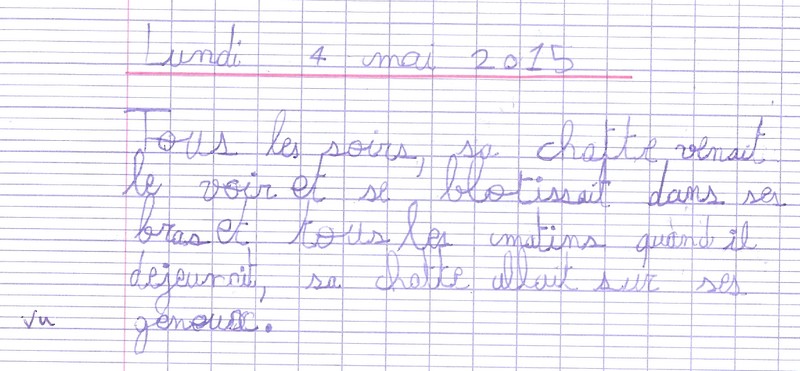 Lundi 4 mai 2015
Tous les soirs, sa chatte venait
le voir et se blotissait dans ses
bras et tous les matins quand il
dejeunait, sa chatte allait sur ses
vu genoux.